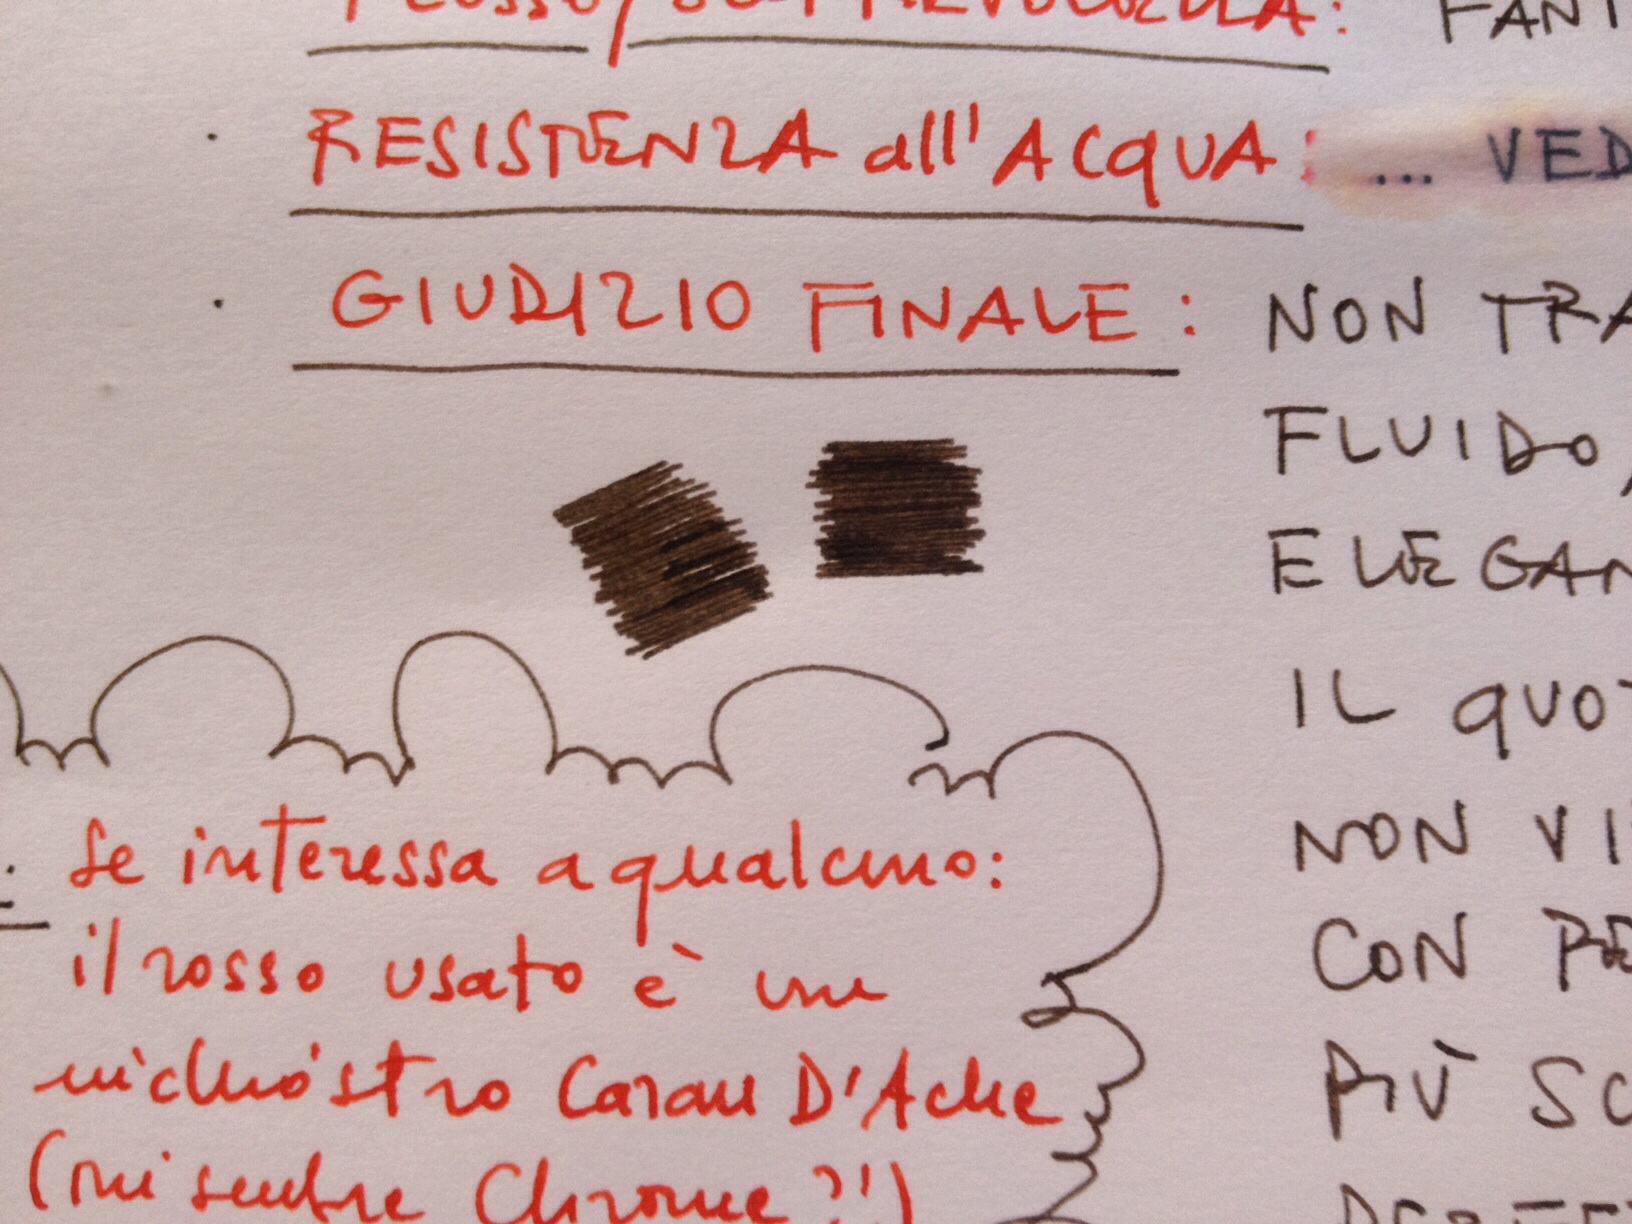 FLUSSO/SCORREVOLEZZA: FANT
RESISTENZA all'ACQUA: ... VED
GIUDIZIO FINALE: NON TRA
FLUIDO,
ELEGAN
IL QUOT
NON VI
CON PE
PIÙ SC
Se interessa a qualcuno:
il rosso usato è un
inchiostro Caran D'Ache
(mi sembra Chrome?!)